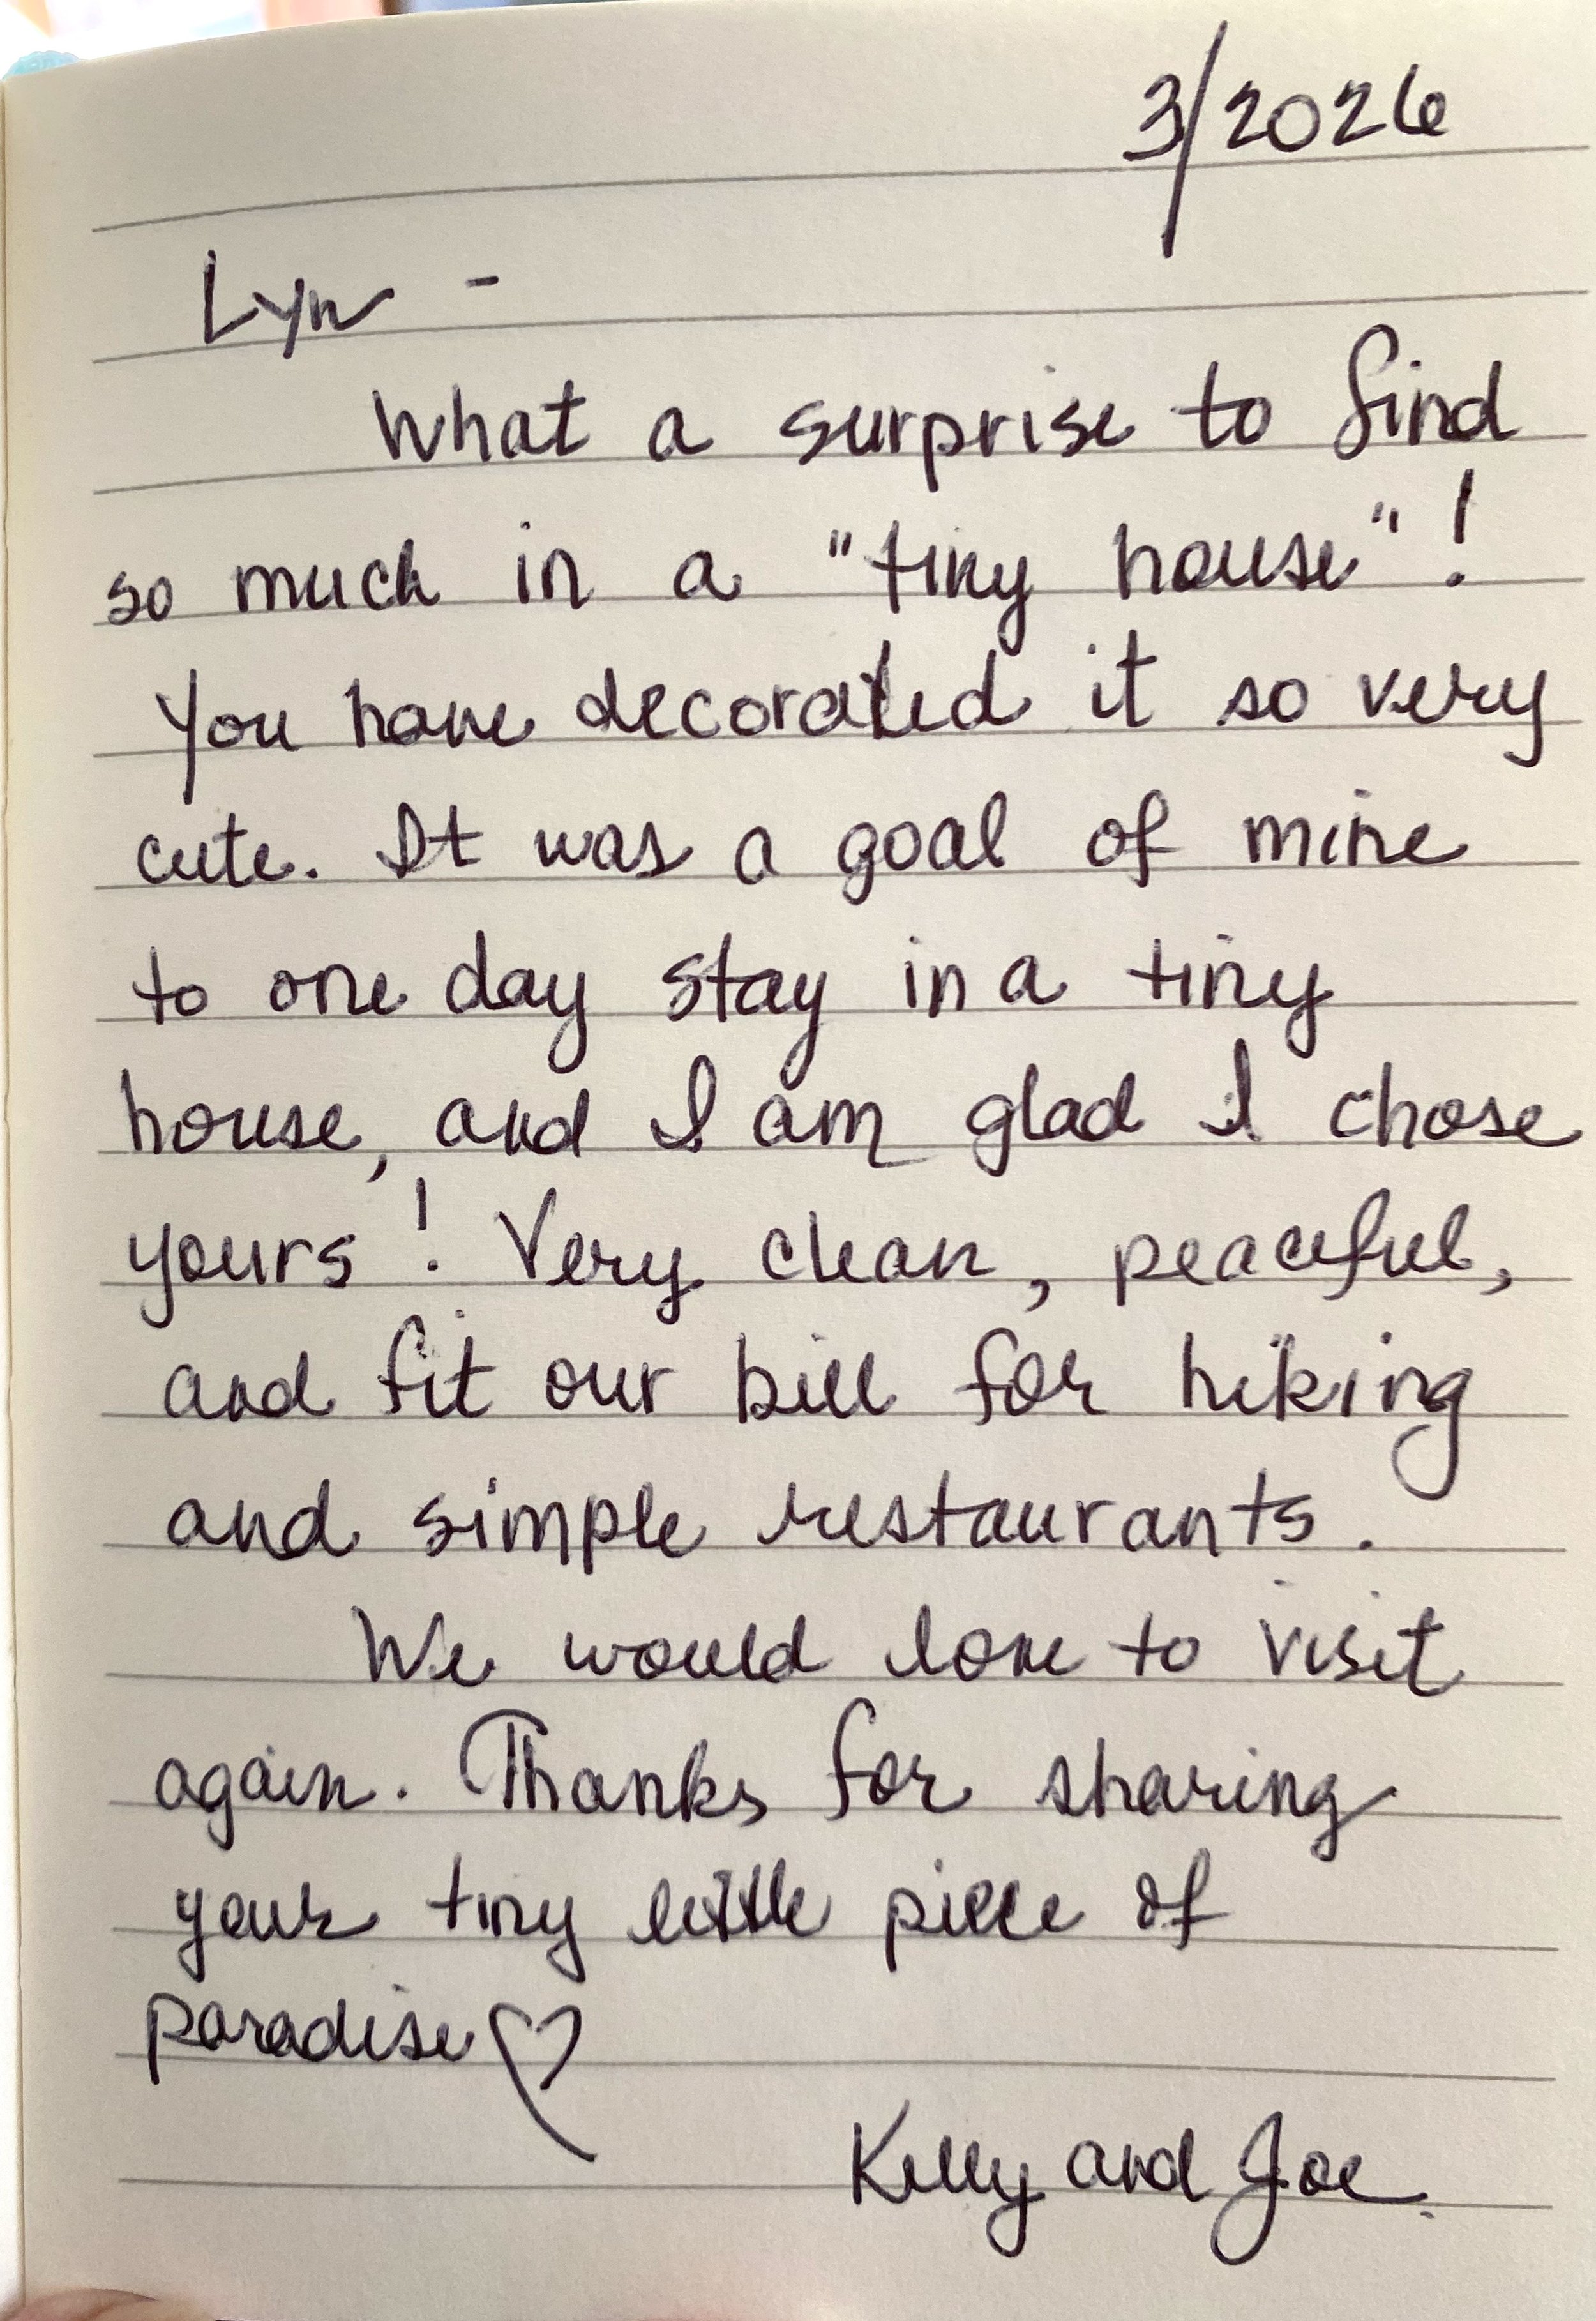 3/2026
Lyn -
What a surprise to find
so much in a "tiny house"!
You have decorated it so very
cute. It was a goal of mine
to one day stay in a tiny
house, and I am glad I chose
yours! Very clean, peaceful,
and fit our bill for hiking
and simple restaurants.
We would love to visit
again. Thanks for sharing
your tiny little piece of
paradise ♡
Kelly and Joe.